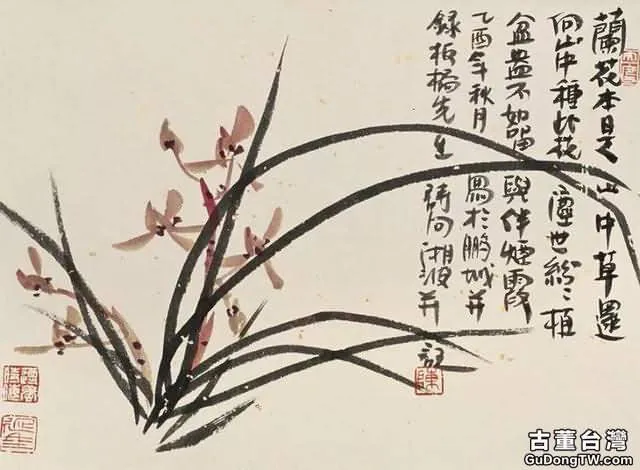 蘭花本是山中草還
向山中種此花塵世紛〻植
盆盎不如留與伴煙霞
乙酉年秋月寫於鵬城并
錄板橋先生詩句湘波并
記
陳
古董台灣
GuDongTW.com